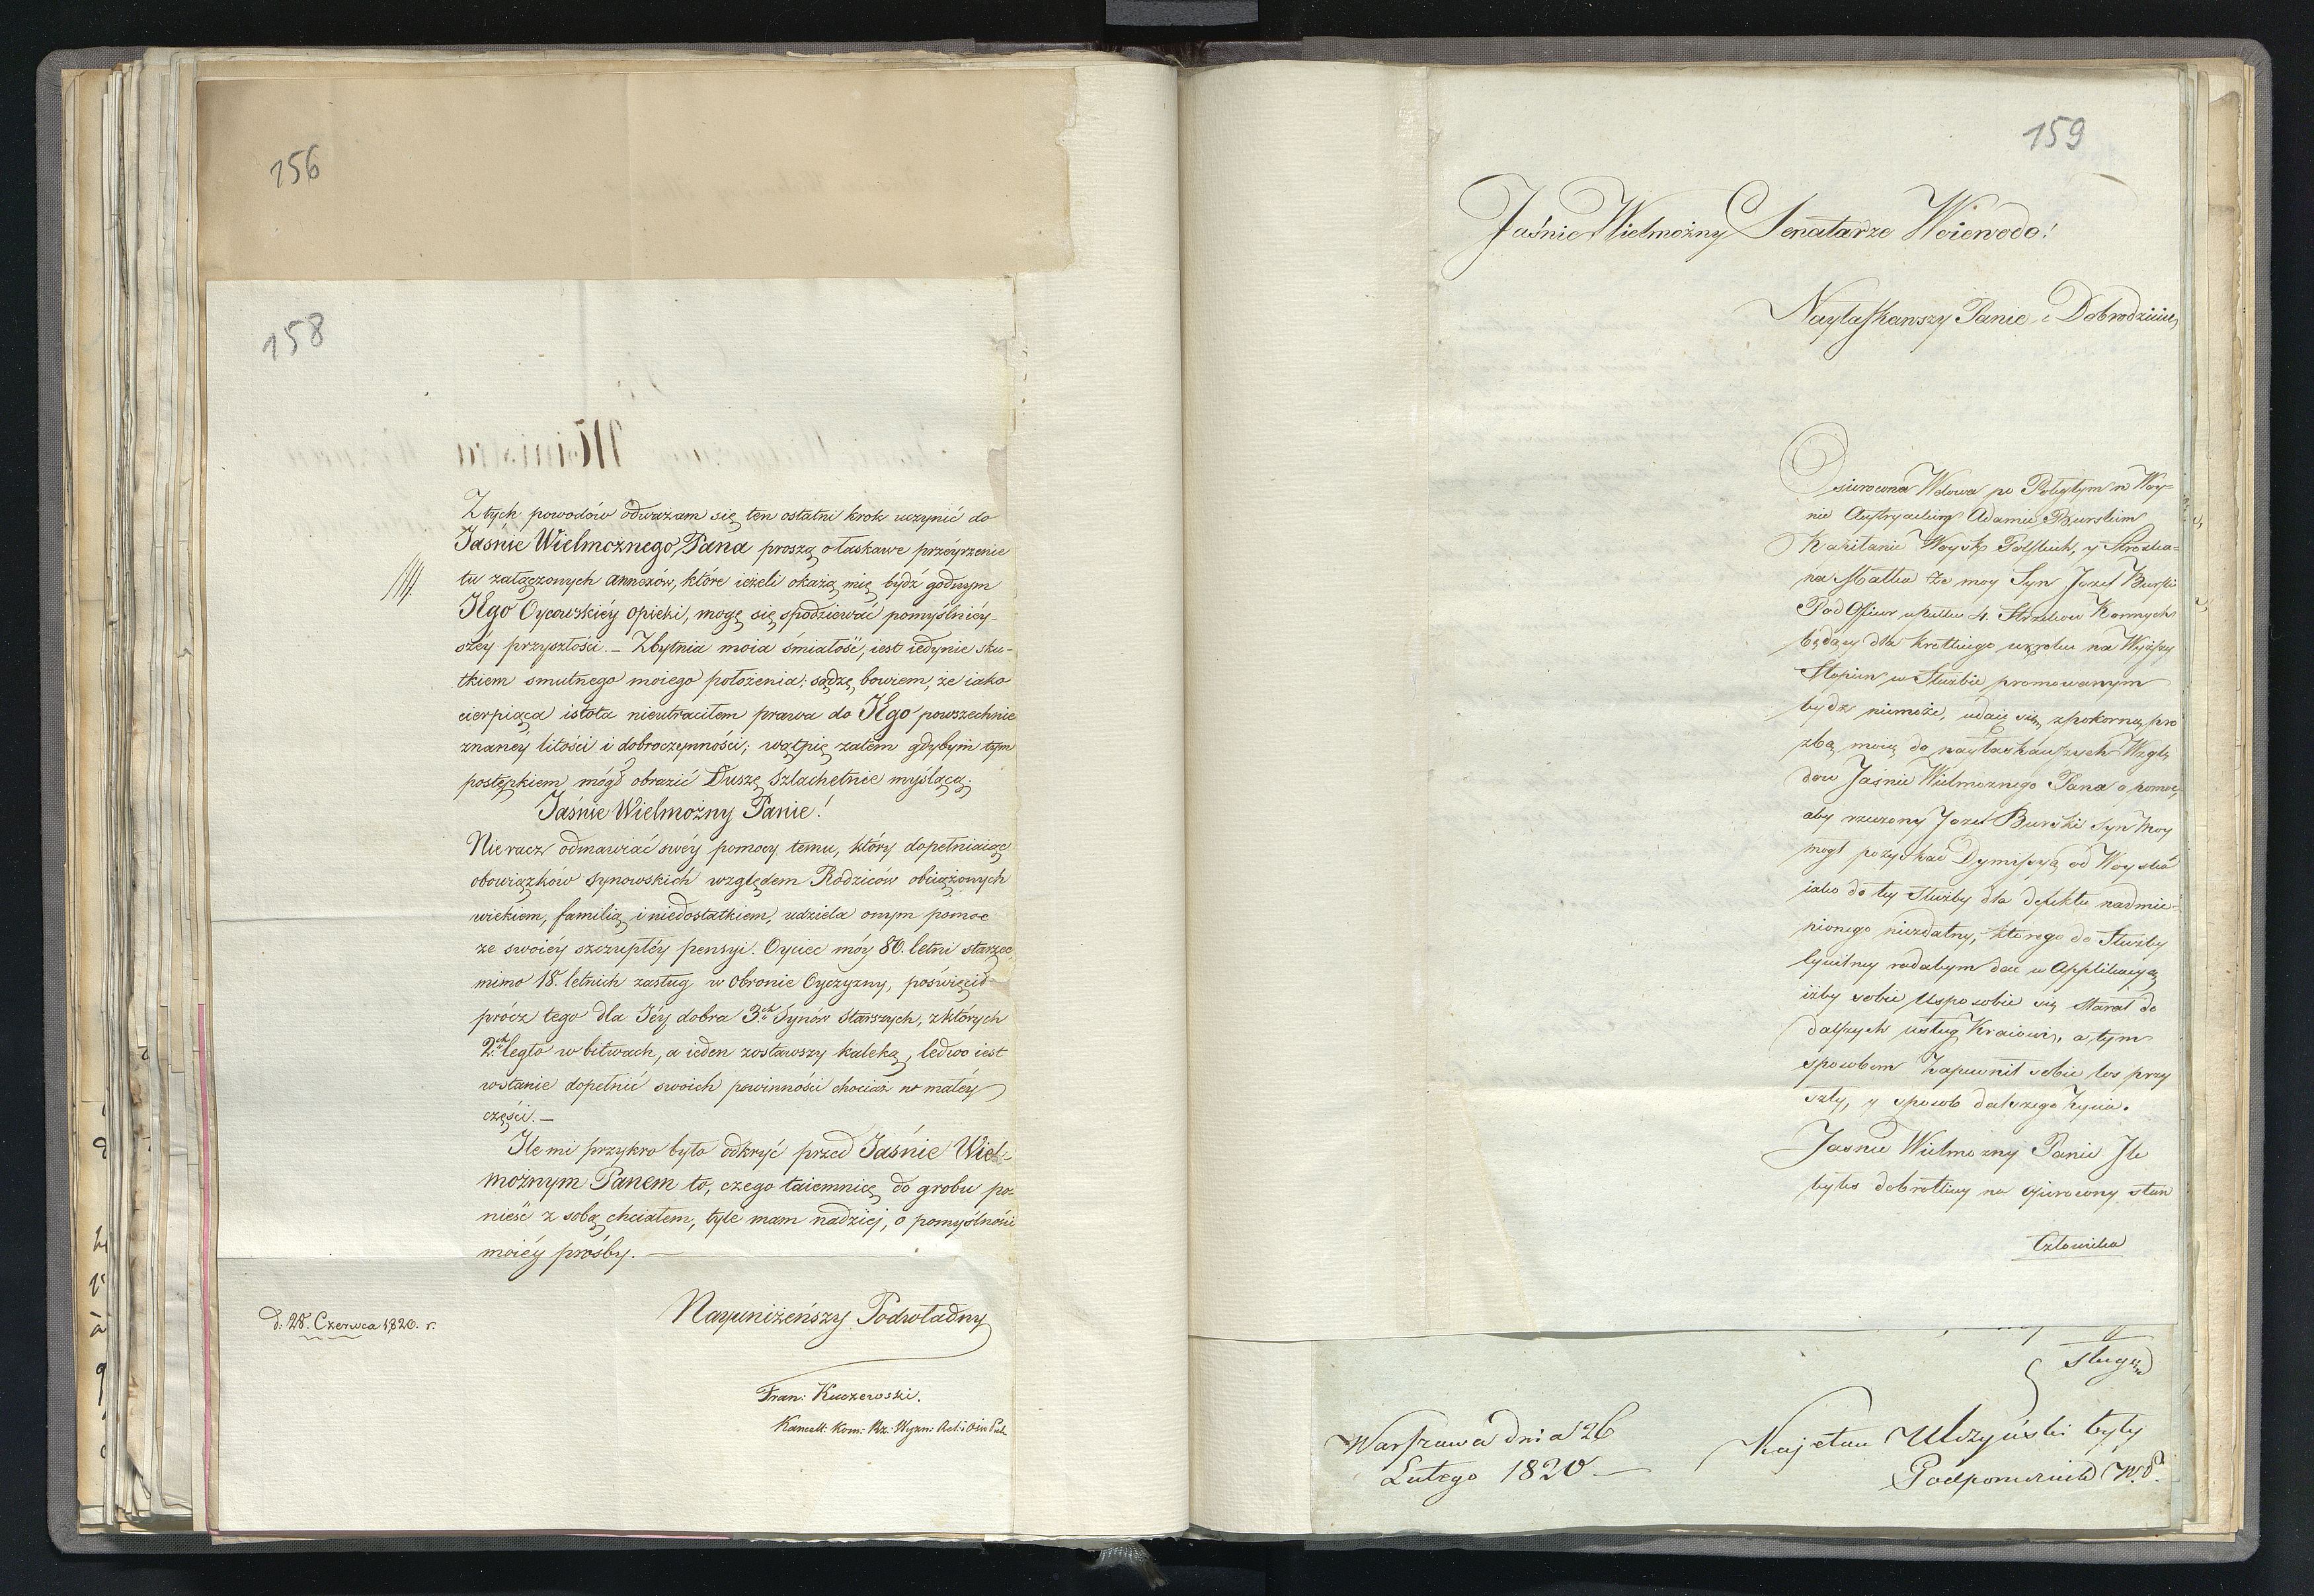 156
158
Z tych powodów odważam się ten ostatni krok uczynić do
Jaśnie Wielmożnego Pana proszą o łaskawe przéyrzenie
tu załączonych annexów, które ieżeli okażą mię bydź godnym
Jego Oycowskiéy opieki, mogę się spodziewać pomyślniéy-
széy przyszłości. – Zbytnia moia śmiałość, iest iedynie sku-
tkiem smutnego moiego położenia; sądzę bowiem, że iako
cierpiąca istota nieutraciłem prawa do Jego powszechnie
znaney litości i dobroczynności; wątpię zatem gdybym tym
postępkiem mógł obrazić Duszę szlachetnie myślącą.
Jaśnie Wielmożny Panie!
Nieracz odmawiać swéy pomocy temu, który dopełniaiąc
obowiązków synowskich względem Rodziców obciążonych
wiekiem, familią i niedostatkiem, udziela onym pomoc
ze swoiéy szczupłéy pensyi. Oyciec móy 80. letni starzec,
mimo 18. letnich zasług w obronie Oyczyzny, poświęcił
prócz tego dla Jéy dobra 3.ch Synów starszych, z których
2.ch legło w bitwach, a ieden zostawszy kaleką, ledwo iest
wstanie dopełnić swoich powinności chociaż w małéy
części. –
Ile mi przykro było odkryć przed Jaśnie Wiel-
możnym Panem to, czego taiemnicę do grobu po-
nieść z sobą chciałem, tyle mam nadziej, o pomyślności
moiéy prośby. —
d. 28. Czerwca 1820. r.
Nayuniżeńszy Podwładny
Fran: Kuczewski.
Kancell: Kom: Rz: Wyzn: Rel: i Ośw: Pub.
159
Jaśnie Wielmożny Senatarze Woiewodo!
Nayłaskawszy Panie i Dobrodzieiu,
Osierocona Wdowa po Poległym w Woy=
nie Austryackiey Adamie Burskim
Kapitanie Woysk Polskich, y Stroska=
na Matka że moy Syn Jozef Burski
Pod Oficer w Pułku 4. Strzelcow Konnych
będący dla krotkiego wzroku na Wyższy
Stopien w Służbie promowanym
bydz niemoże, udaię się z pokorną pro
zbą moią do nayłaskawszych Wzglę
dow Jaśnie Wielmoznego Pana o pomoc,
aby rzeczony Jozef Burski Syn Moy
mogł pozyskać Dymissyą od Woyska
iako do tey Służby dla defektu nadmie=
nionego niezdatny, ktorego do Służby
Cywilney radabym dać w Applikacyą
iżby sobie usposobić się starał do
dalszych usług Kraiowi, a tym
sposobem Zapewnił sobie los przy
szły, y sposob dalszego życia.
Jasnie Wielmożny Panie Ile
byłes dobrotliwy na osierocony stan
Człowieka
sługa
Warszawa dnia 26
Lutego 1820 —
Kajetan Ulczyński były
Podporucznik W.P.